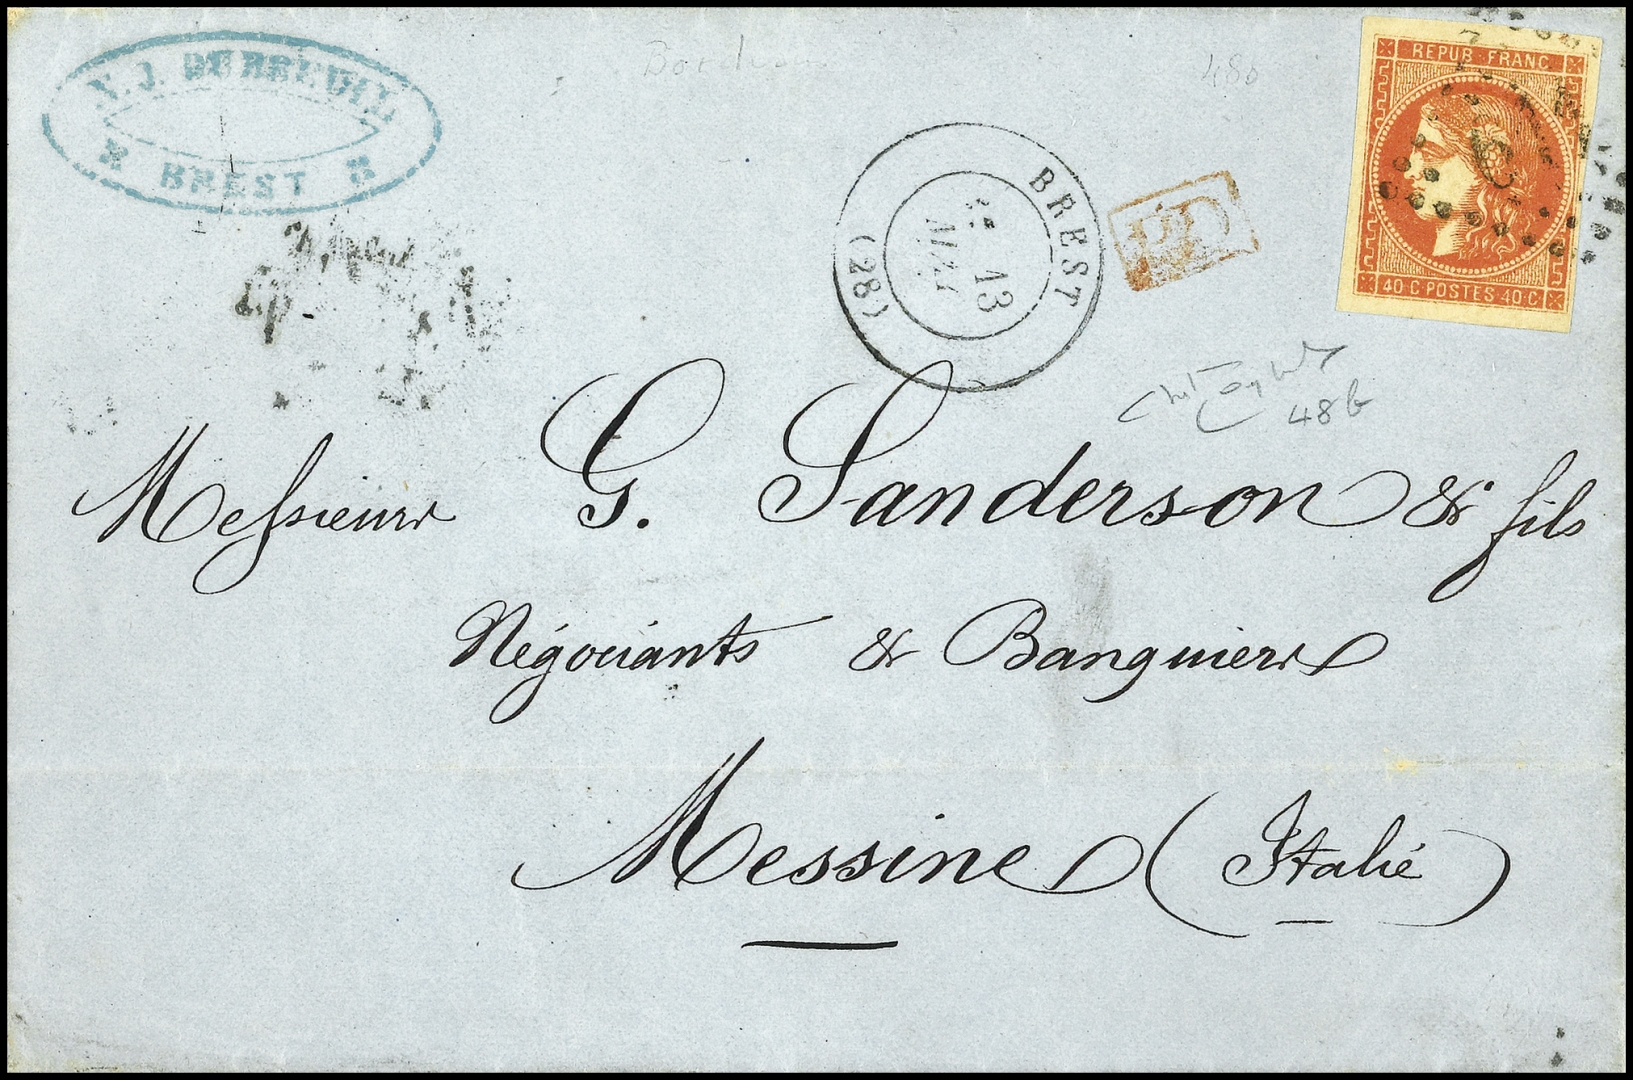 N. J. DUBREUIL
BREST
Bordeaux
BREST
13
(28)
PD
REPUB. FRANC
40 C POSTES 40 C
48b
Messieurs G. Sanderson & fils
Négociants & Banquiers
Messine (Italie)